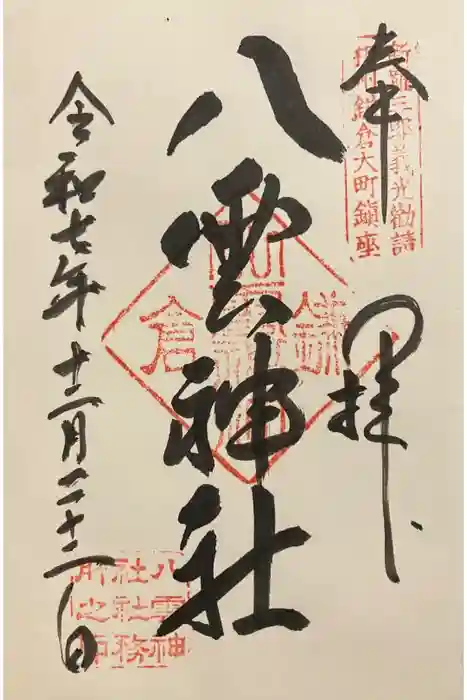 新羅三郎義光勧請
相州鎌倉大町鎮座
奉拝
八雲神社
鎌倉
令和七年十二月二十二日
八雲神
社社務
所之印